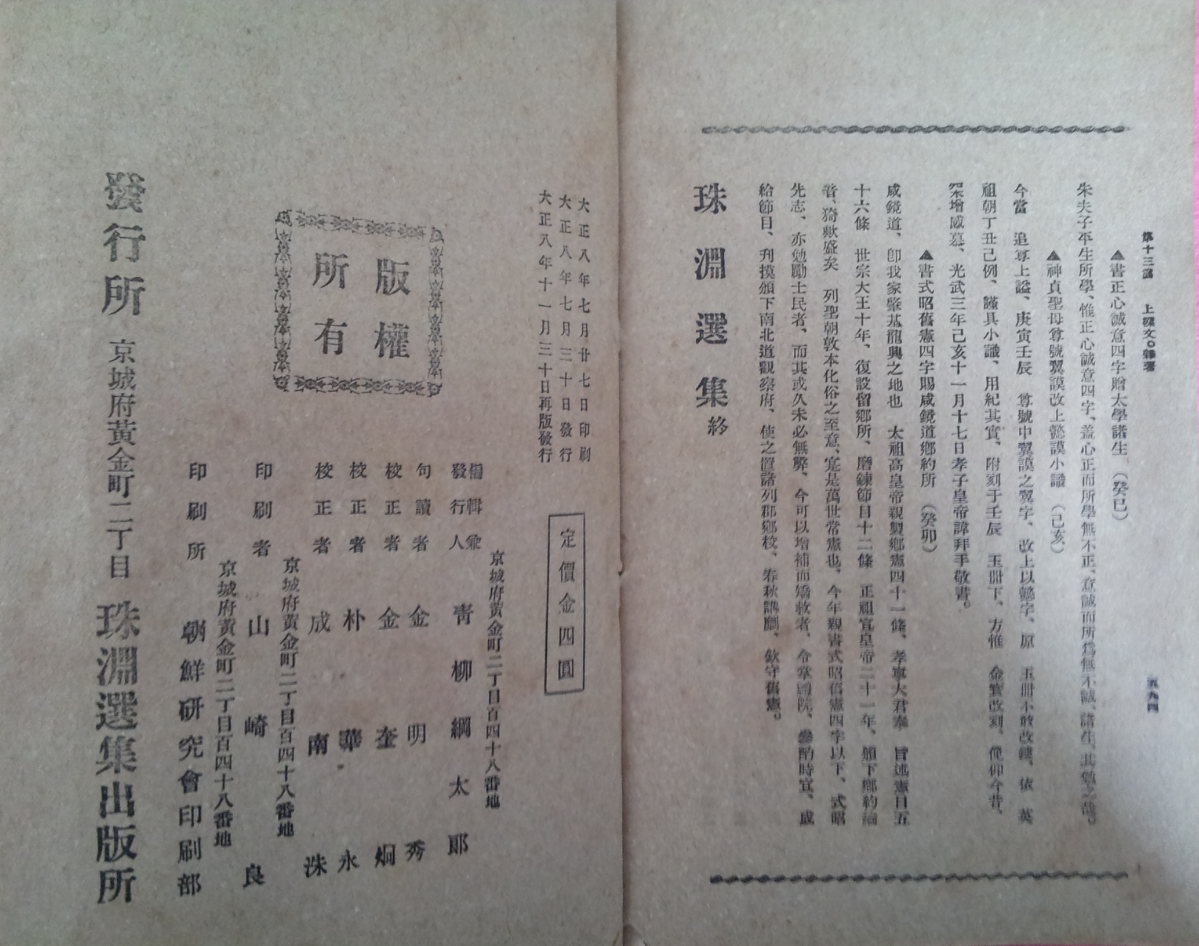 第十三篇 上樑文。雜著
五九四
▲書正心誠意四字贈太學諸生 (癸巳)
朱夫子平生所學、惟正心誠意四字、蓋心正而所學無不正、意誠而所爲無不誠、諸生、其勉之哉。
▲神貞聖母尊號翼謨改上懿謨小識 (己亥)
今當 追尊上諡、庚寅壬辰 尊號中翼謨之翼字、改上以懿字、原 玉冊不敢改鐫、依 英
祖朝丁丑已例、謹具小識、用紀其實、附刻于壬辰 玉冊下、方惟 金寶改刻、俛仰今昔、
冞增感慕、光武三年己亥十一月十七日孝子皇帝諱拜手敬書。
▲書式昭舊憲四字賜咸鏡道鄕約所 (癸卯)
咸鏡道、卽我家肇基龍興之地也 太祖高皇帝親製鄕憲四十一條、孝寧大君奉 旨述憲目五
十六條 世宗大王十年、復設留鄕所、磨鍊節目十二條 正祖宣皇帝二十一年、頒下鄕約綸
音、猗歟盛矣 列聖朝敦本化俗之至意、寔是萬世常憲也、今年親書式昭舊憲四字以下、式昭
先志、亦勉勵士民者、而其或久未必無弊、今可以增補而矯救者、令掌禮院、參酌時宜、成
給節目、刋摸頒下南北道觀察府、使之置諸列郡鄕校、春秋講劘、欽守舊憲。
珠淵選集 終
大正八年七月廿七日印刷
大正八年七月三十日發行
大正八年十一月三十日再版發行
定價金四圓
版權
所有
京城府黃金町二丁目百四十八番地
編輯兼
發行人 靑柳綱太郞
句讀者 金明秀
校正者 金奎烱
校正者 朴華永
校正者 成南洙
京城府黃金町二丁目百四十八番地
印刷者 山崎良
京城府黃金町二丁目百四十八番地
印刷所 朝鮮硏究會印刷部
發行所 京城府黃金町二丁目 珠淵選集出版所